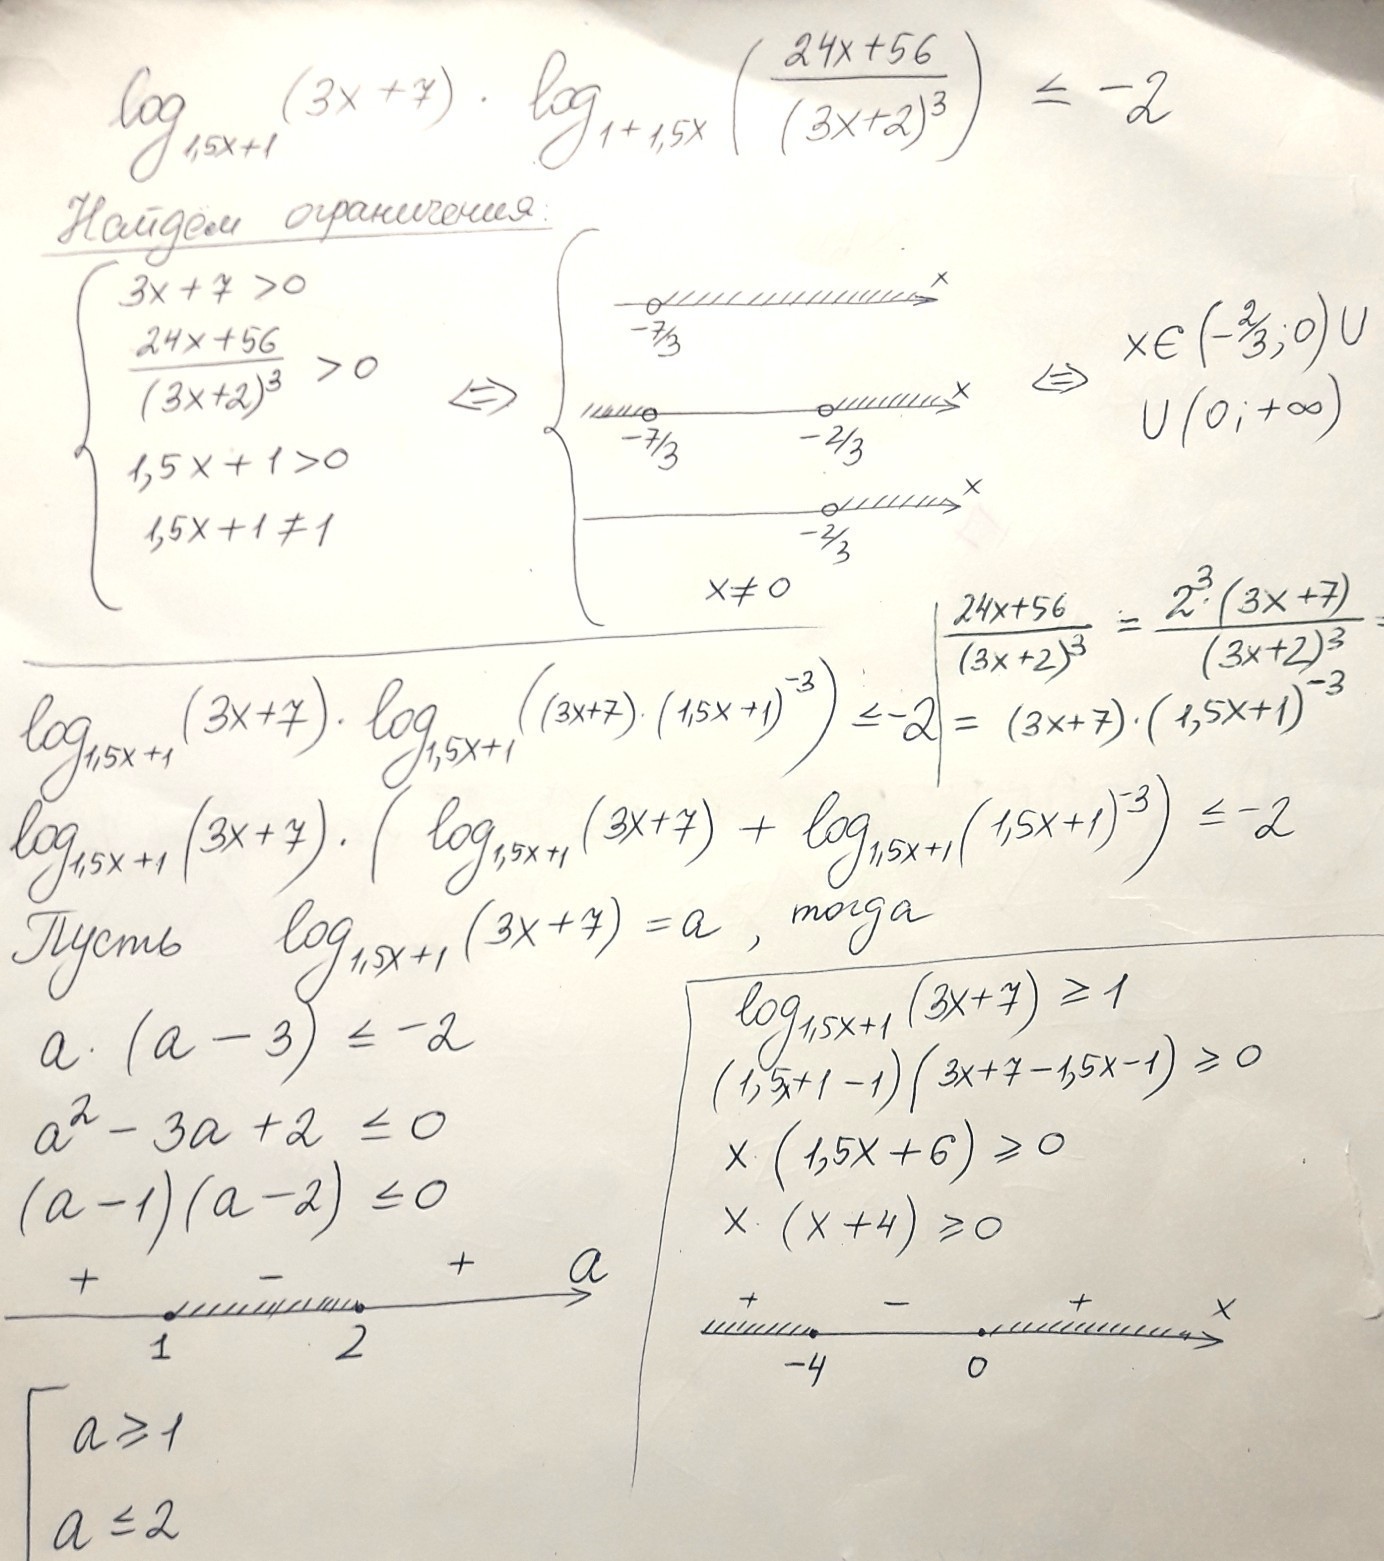 log_{1,5x+1} (3x+7) · log_{1+1,5x} ( (24x+56)/(3x+2)^3 ) ≤ -2
Найдём ограничения:
{ 3x+7 >0
(24x+56)/(3x+2)^3 > 0
1,5x+1>0
1,5x+1≠1
⇔ {
-7/3 x
-7/3 -2/3 x
-2/3 x
x≠0
⇔ x∈(-2/3; 0) U
U (0; +∞)
(24x+56)/(3x+2)^3 = (2^3·(3x+7))/(3x+2)^3 =
= (3x+7)·(1,5x+1)^{-3}
log_{1,5x+1} (3x+7) · log_{1,5x+1} ((3x+7)·(1,5x+1)^{-3}) ≤ -2
log_{1,5x+1} (3x+7) · ( log_{1,5x+1} (3x+7) + log_{1,5x+1} (1,5x+1)^{-3} ) ≤ -2
Пусть log_{1,5x+1} (3x+7) = a , тогда
a · (a - 3) ≤ -2
a^2 - 3a + 2 ≤ 0
(a - 1)(a - 2) ≤ 0
+ - + a
1 2
[ a ≥ 1
a ≤ 2
log_{1,5x+1} (3x+7) ≥ 1
(1,5x+1-1)(3x+7-1,5x-1) ≥ 0
x · (1,5x+6) ≥ 0
x · (x+4) ≥ 0
+ - + x
-4 0